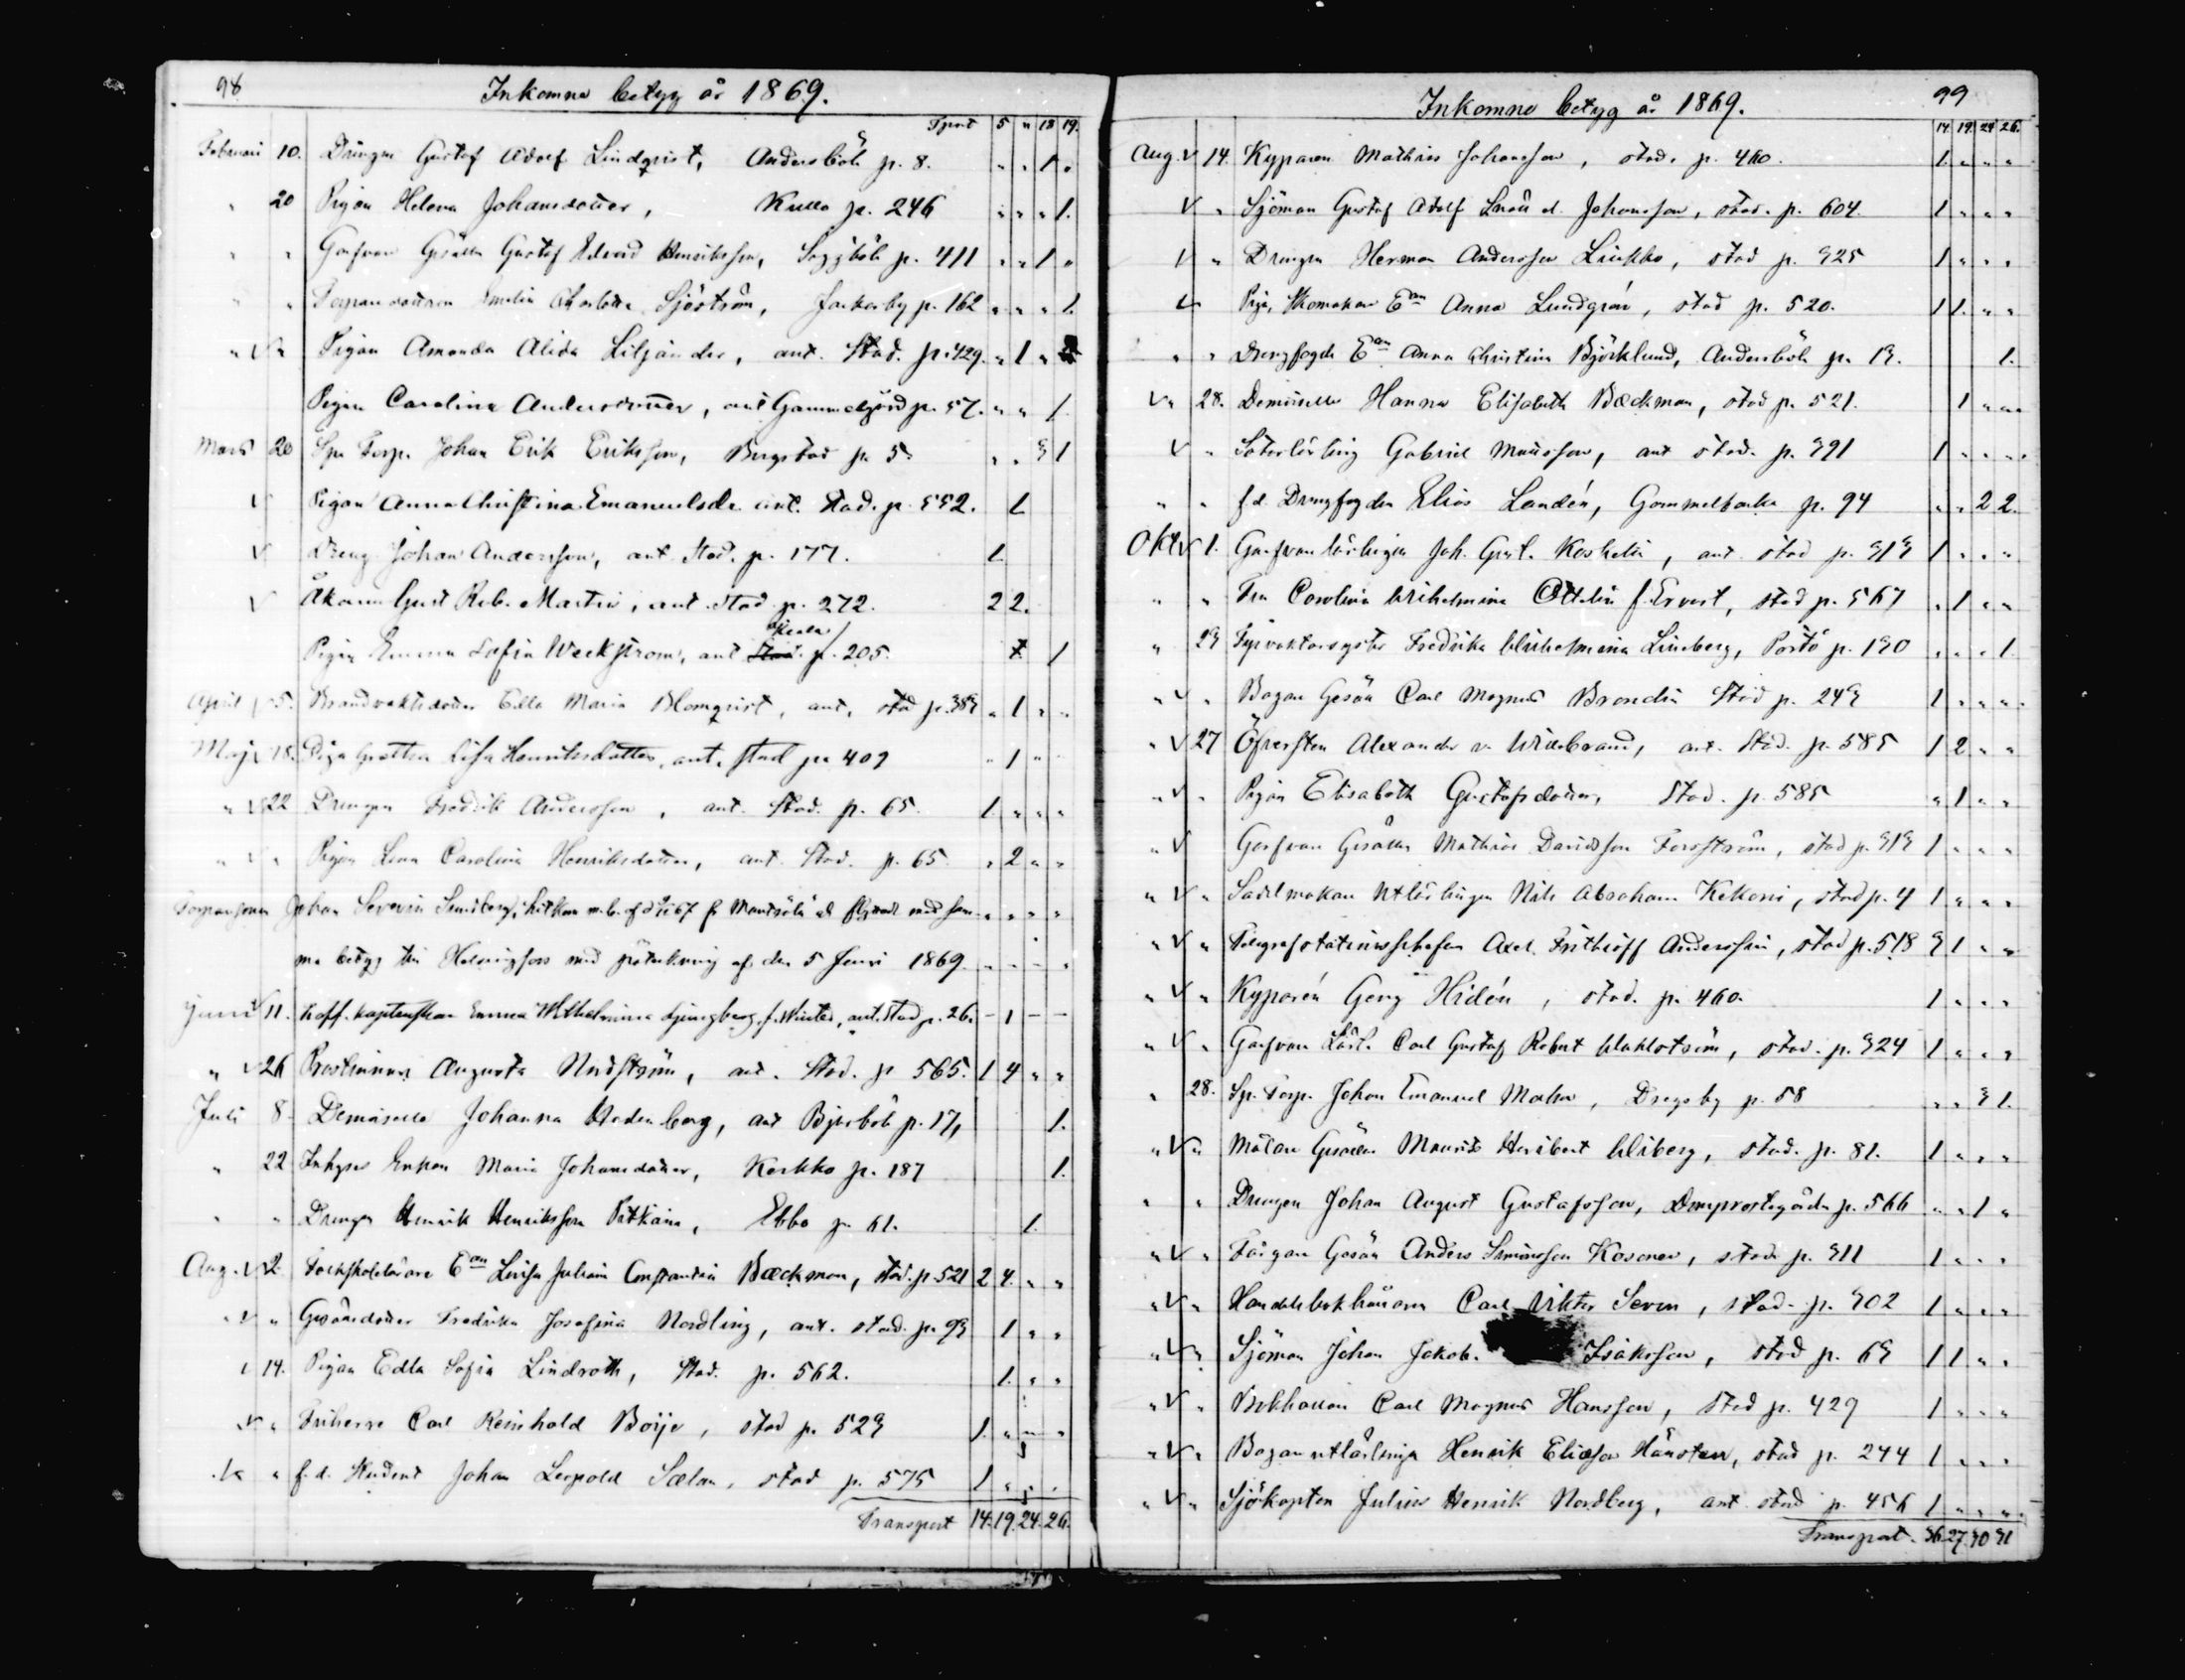 98
Inkomna betyg år 1869.
Tport 5 " 18 19.
Februari 10. Drängen Gustaf Adolf Lindqvist, Andersböle p. 8. " " 1 "
" 20 Pigan Helena Johansdotter, Kulla p. 246 " " " 1.
" " Garfvare Gesällen Gustaf Edvard Henriksson, p. 411 " " 1 "
" " Emelie Charlotta Sjöström, Jackarby p. 162 " " " 1.
" V " Pigan Amanda Alida Liljander, ant. Stad. p. 429. " 1 "
Pigan Carolina Andersdotter, ant Gammelgård p. 57. " " 1
Mars 20 Sp. Torp. Johan Erik Eriksson, Bergstad p. 5 " " 3 1
V Pigan Anna Christina Emanuelsdr ant. Stad. p. 552. 1
V Dreng Johan Andersson, ant. Stad. p. 177. 1.
V Åkaren Gust. Rob. Martin, ant. Stad p. 272. 2 2.
Pigan Emma Sofia Weckström, ant p. 205. 1
April V 5. Brandvaktsdotter Edla Maria Blomqvist, ant. stad p. 383 " 1 " "
Maj V 18. Piga Lisa Henriksdotter, ant. stad p. 409 " 1 "
" V 22 Drengen Fredrik Andersson, ant. Stad. p. 65. 1. " " "
" V " Pigan Lena Carolina Henriksdotter, ant. Stad. p. 65 " 2 " "
Johan Severin Sundberg,
betyg till Helsingfors med påteckning af den 5 Juni 1869
Juni V 11. Emma Wilhelmina Ljungberg, f. Winter, ant. Stad p. 26. - 1 - -
" V 26 Augusta Nordström, ant. Stad. p 565. 1 4 " "
Juli 8. Demoiselle Johanna Hedenberg, ant Bjurböle p. 17, 1.
" 22 Inhyses Enkan Maria Johansdotter, Kerkko p. 187 1.
" " Drengen Henrik Henriksson Pitkäin, Ebbo p. 61. 1.
Aug. V 2. Folkskolelärare Ean Lovisa Juliana Constantia Bæckman, stad. p. 521 2 4. " "
" V " Gesälldotter Fredrika Josefina Nordling, ant. stad. p. 93 1 " "
V 14. Pigan Edla Sofia Lindroth, Stad. p. 562. 1. " "
V " Friherre Carl Reinhold Boije, stad p. 523 1. " "
V " f. d. Student Johan Leopold Sælan, stad p. 575 1 " "
Transport 14. 19. 24. 26.
99
Inkomna betyg år 1869.
14 19 24 26.
Aug. V 14. Kyparen Mathias Johansson, stad. p. 460. 1. " " "
V " Sjöman Gustaf Adolf Johansson, stad. p. 604. 1 " " "
V " Drengen Herman Andersson Liukko, stad p. 325 1 " " "
V Piga, Skomakare Ean Anna Lundgrén, stad p. 520. 1 1. " "
" " Drengfogde Ean Anna Christina Björklund, Andersböle p. 13. 1.
V " 28. Demoiselle Hanna Elisabeth Bæckman, stad p. 521. 1 " "
V " Gabriel Mattsson, ant stad. p. 391 1 " " "
" " f. d. Drengfogden Elias Landén, Gammelbacka p. 94 " " 2 2.
Okt V 1. Garfvare lärlingen Joh. Gust. Koskelin, ant. stad p. 313 1 " " "
" " Fru Carolina Wilhelmina Ottelin f. Ervast, stad p. 567 " 1 " "
" 23 Fyrvaktarsyster Fredrika Wilhelmina Lineberg, Pörtö p. 130 " " " 1.
" V " Bagare Gesäll Carl Magnus Brandin Stad p. 243 1 " " "
" V 27 Öfversten Alexander v. Willebrand, ant. Stad. p. 585 1 2 " "
" V " Pigan Elisabeth Gustafsdotter, Stad. p. 585 " 1 " "
" V Garfvare Gesällen Mathias Davidsson Forsström, stad p. 313 1 " " "
" V " Sadelmakare Utlärlingen Nils Abraham Kekoni, stad p. 4 1 " " "
" V " Telegrafstationschefen Axel Frithioff Anderssin, stad p. 518 3 1 " "
" V " Kyparén Georg Hidén, stad. p. 460. 1 " " "
" V " Garfvare Lärl. Carl Gustaf Robert Wahlström, stad. p. 324 1 " " "
" 28. Sp. Torp. Johan Emanuel Malm, Dregsby p. 58 " " 3 1.
" V " Målare Gesällen Mauritz Heribert Wiberg, stad. p. 81. 1 " " "
" " Drengen Johan August Gustafsson, Domprostegården p. 566 " " 1 "
" V " Färgare Gesäll Anders Simonsson Kosonen, stad p. 311 1 " " "
" V " Handelsbokhållaren Carl Viktor Seven, stad. p. 302 1 " " "
" V " Sjöman Johan Jakob. Isaksson, stad p. 63 1 1 " "
" V " Bokhållaren Carl Magnus Hansson, Stad p. 429 1 " " "
" V " Bagareutlärlinge Henrik Eliasson Hånsten, stad p. 244 1 " " "
" V " Sjökapten Julius Henrik Nordberg, ant stad p. 456 1 " " "
Transport. 36 27 30 31